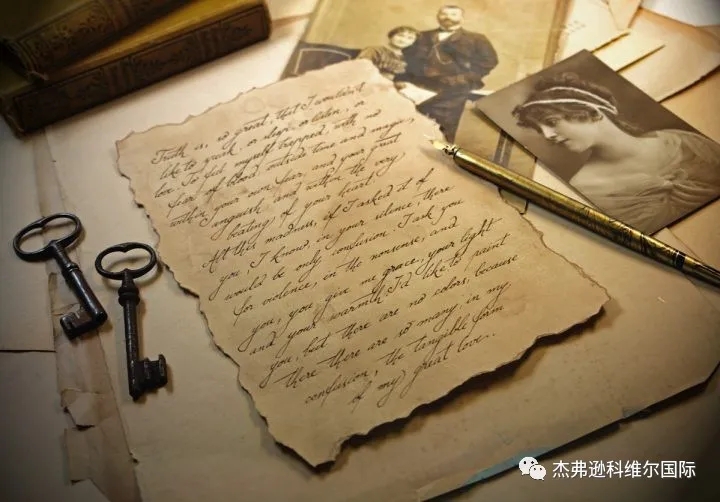 Truth is, so great, that I wouldn't
like to speak, or sleep, or listen, or
love. To feel myself trapped, with no
fear of blood, outside time and magic,
within your own fear, and your great
anguish, and within the very
beating of your heart.
All this madness, if I asked it of
you, I know, in your silence, there
would be only confusion. I ask you
for violence, in the nonsense, and
you, you give me grace, your light
and your warmth. I'd like to paint
you, but there are no colors, because
there there are so many, in my
confusion, the tangible form
of my great love..
杰弗逊科维尔国际